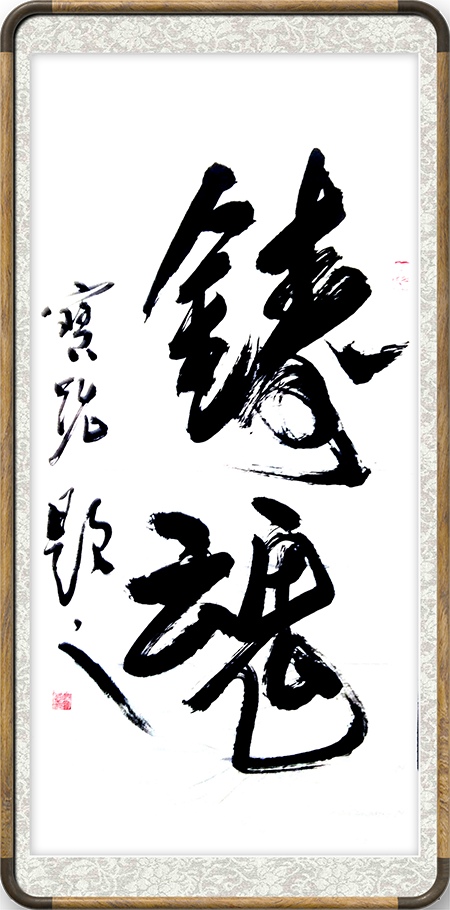 鑄魂
寶題之